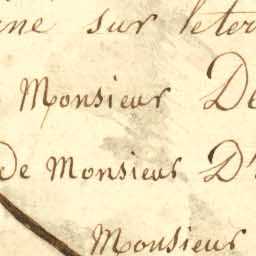 sur
Monsieur De
De Monsieur D'
Monsieur